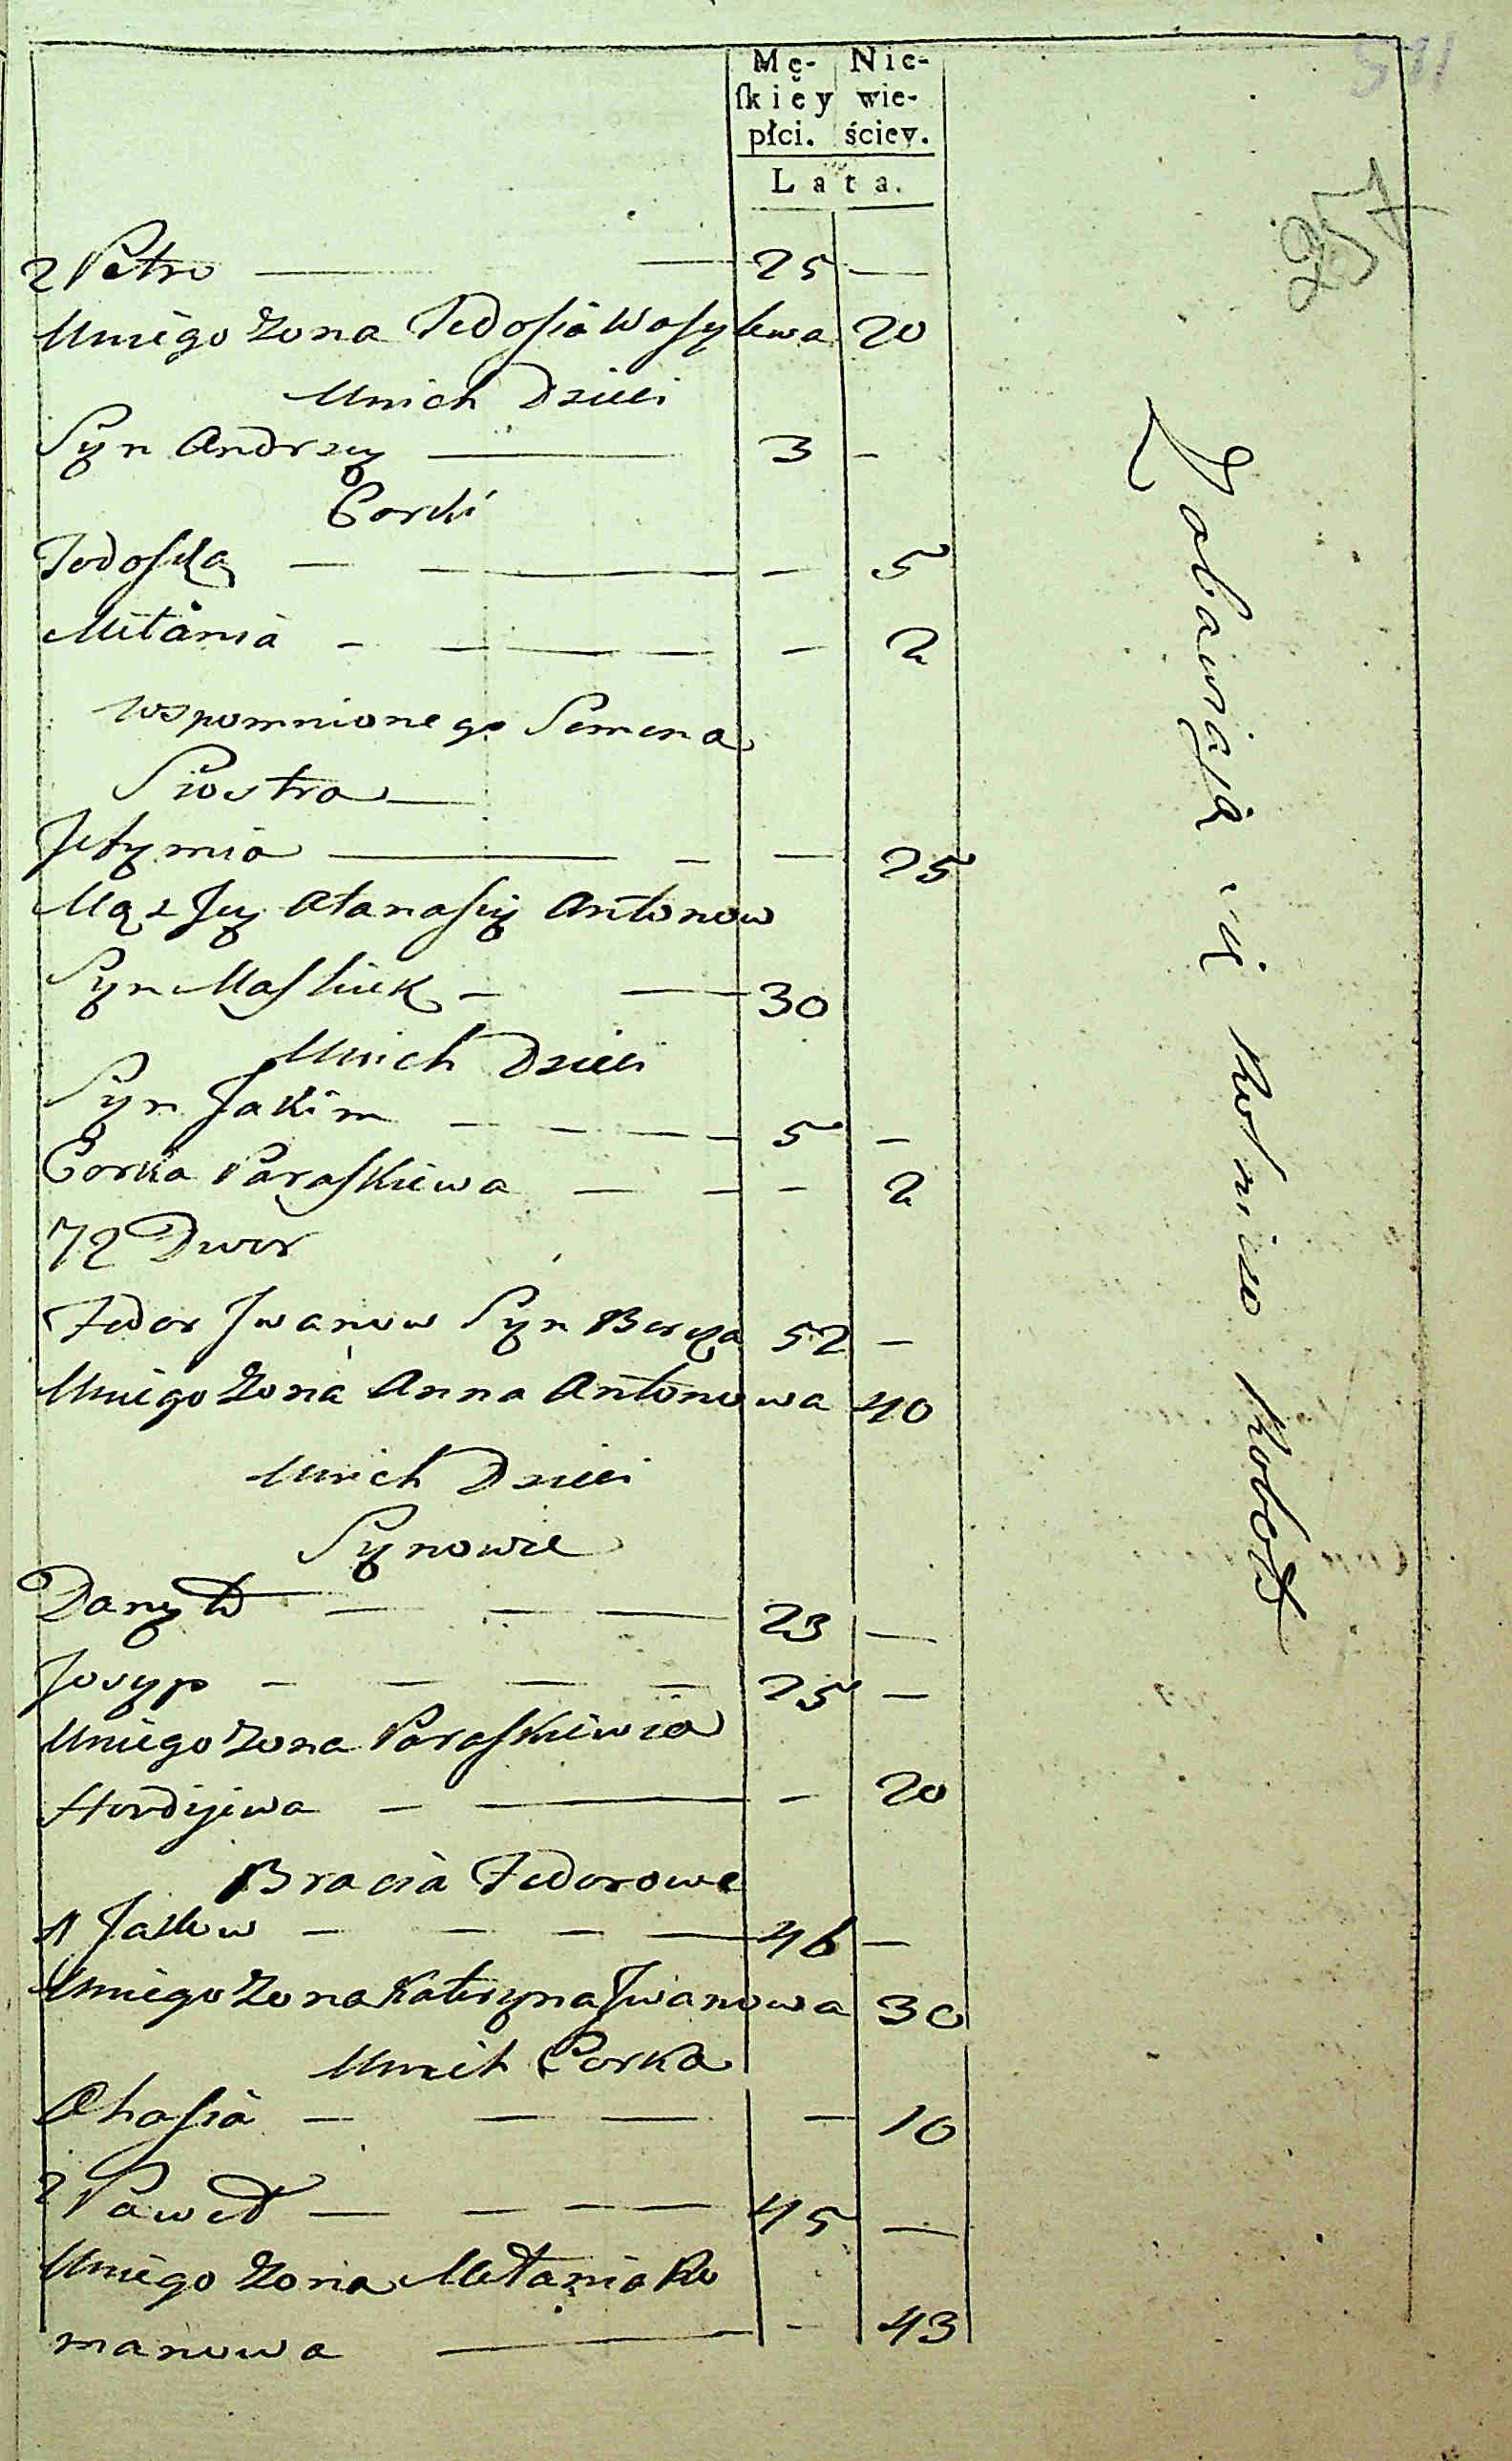 Mę- Nie-
ſkiey wie-
płci. ściey.
Lata.
257
2 Petro — — 25 —
Uniego Zona Fedoſia Waſylewa 20
Unich Dzieci
Syn Andrzey — 3 —
Corki
Todoſka — — — 5
Mełania — — — 2
Wspomnionego Semena
Siostra —
Jefymia — — — 25
Mąz Jey Atanaſiy Antonow
Syn Maſliuk — — 30
Unich Dzieci
Syn Jakim — — — — 5 —
Corka Paraſkiewa — — — 2
72 Dwor
Fedor Jwanow Syn Bercza 52 —
Uniego Zona Anna Antonowa 40
Unich Dzieci
Synowie
Danyło — — — 23 —
Josyp — — — — 25 —
Uniego Zona Paraſkiewia
Hordijewa — — — 20
Bracia Fedorowe
1 Jakow — — — — 46 —
Uniego Zona Kateryna Jwanowa 30
Unich Corka
Ahaſia — — — — 10
2 Paweł — — — — 45 —
Uniego Zona Mełania Ro
manowa — — 43
Zabawiają się Rolniczo Robotą